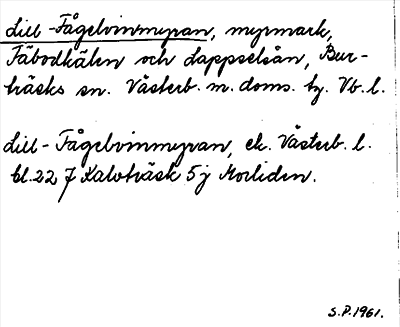 Lill-Fågelvinmyran, myrmark,
Fäbodkälen och Lappselsån, Bur-
träsks sn. Västerb. m. doms. bg. Vb. l.
Lill-Fågelvinmyran, ek. Västerb. l.
bl. 22 7 Kalvträsk 5j Morliden.
S.P. 1961.